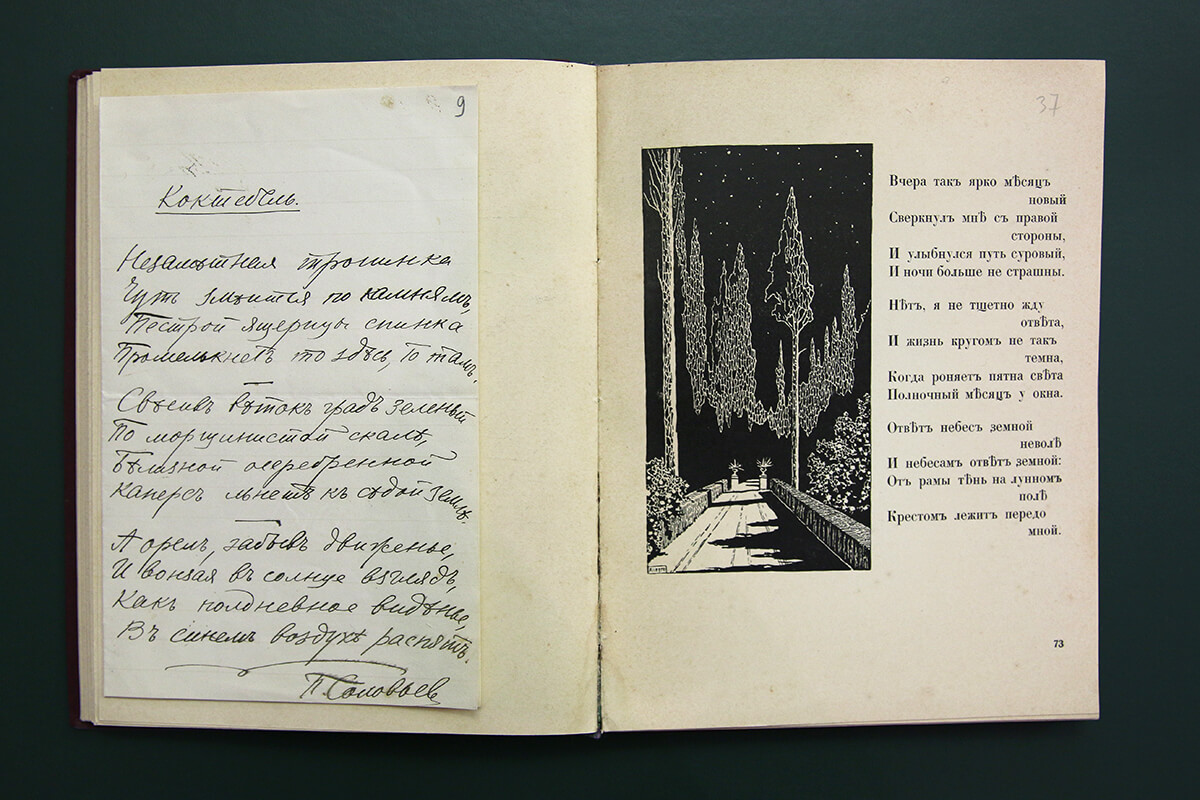 9
Коктебель.
Незамѣтная тропинка
Чуть змѣится по камнямъ,
Пестрой ящерицы спинка
Промелькнетъ то здѣсь, то тамъ.
Свѣсивъ вѣтокъ градъ зеленый
По морщинистой скалѣ,
Бѣлизной осеребренной
Каперсъ льнетъ къ сѣдой землѣ.
А орелъ, забывъ движенье,
И вонзая въ солнце взглядъ,
Какъ полдневное видѣнье,
Въ синемъ воздухѣ распятъ.
П. Соловьева
37
Вчера такъ ярко мѣсяцъ
новый
Сверкнулъ мнѣ съ правой
стороны,
И улыбнулся путь суровый,
И ночи больше не страшны.
Нѣтъ, я не тщетно жду
отвѣта,
И жизнь кругомъ не такъ
темна,
Когда роняетъ пятна свѣта
Полночный мѣсяцъ у окна.
Отвѣтъ небесъ земной
неволѣ
И небесамъ отвѣтъ земной:
Отъ рамы тѣнь на лунномъ
полѣ
Крестомъ лежитъ передо
мной.
73